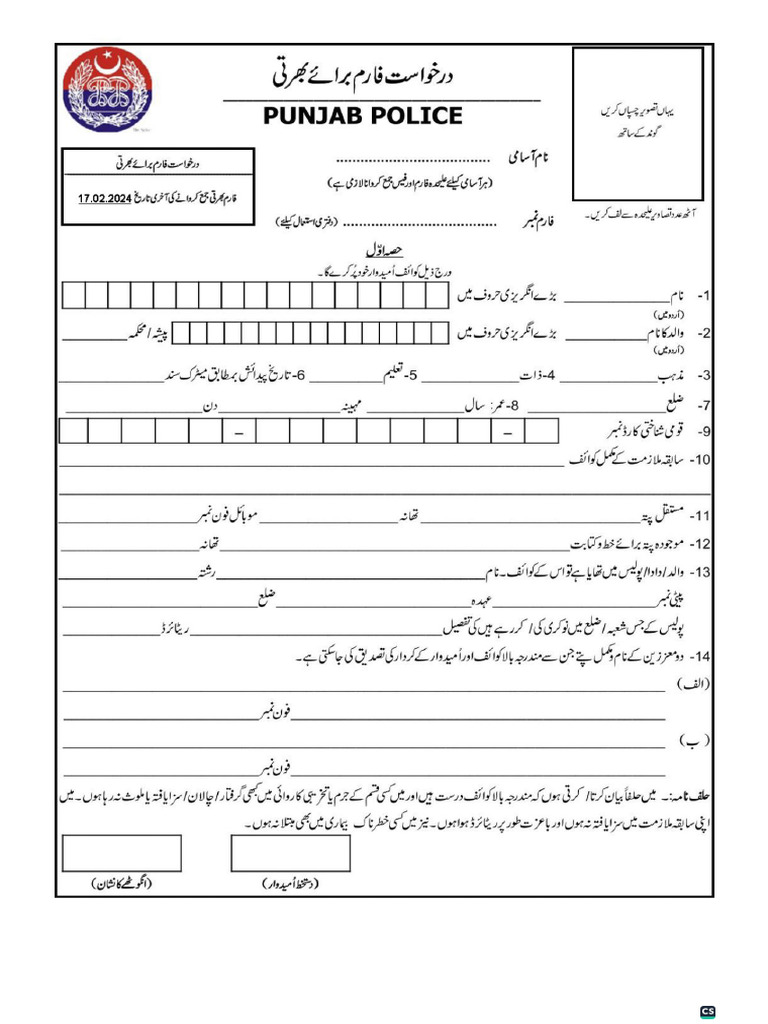 درخواست فارم برائے بھرتی
PUNJAB POLICE
یہاں تصویر چسپاں کریں
گوند کے ساتھ
آٹھ عدد تصاویر علیحدہ سے لف کریں۔
درخواست فارم برائے بھرتی
فارم بھرتی جمع کروانے کی آخری تاریخ 17.02.2024
نام آسامی ....................................
(ہر آسامی کیلئے علیحدہ فارم اور فیس جمع کروانا لازمی ہے)
فارم نمبر .................................... (دفتری استعمال کیلئے)
حصہ اوّل
درج ذیل کوائف اُمیدوار خود پُر کرے گا۔
1- نام ____________ بڑے انگریزی حروف میں
(اُردو میں)
2- والد کا نام ____________ بڑے انگریزی حروف میں پیشہ / محکمہ ____________
(اُردو میں)
3- مذہب ____________ 4- ذات ____________ 5- تعلیم ____________ 6- تاریخ پیدائش بمطابق میٹرک سند ____________
7- ضلع ____________ 8- عمر: سال ____________ مہینہ ____________ دن ____________
9- قومی شناختی کارڈ نمبر – –
10- سابقہ ملازمت کے مکمل کوائف ____________
11- مستقل پتہ ____________ تھانہ ____________ موبائل فون نمبر ____________
12- موجودہ پتہ برائے خط و کتابت ____________ تھانہ ____________
13- والد / دادا / پولیس میں تھا یا ہے تو اس کے کوائف۔ نام ____________ رشتہ ____________
پیٹی نمبر ____________ عہدہ ____________ ضلع ____________
پولیس کے جس شعبہ / ضلع میں نوکری کی / کر رہے ہیں کی تفصیل ____________ ریٹائرڈ ____________
14- دو معززین کے نام و مکمل پتے جن سے مندرجہ بالا کوائف اور اُمیدوار کے کردار کی تصدیق کی جا سکتی ہے۔
(الف) ____________
____________ فون نمبر ____________
(ب) ____________
____________ فون نمبر ____________
حلف نامہ:۔ میں حلفاً بیان کرتا / کرتی ہوں کہ مندرجہ بالا کوائف درست ہیں اور میں کسی قسم کے جرم یا تخریبی کاروائی میں کبھی گرفتار / چالان / سزا یافتہ یا ملوث نہ رہا ہوں۔ میں
اپنی سابقہ ملازمت میں سزا یافتہ نہ ہوں اور باعزت طور پر ریٹائرڈ ہوا ہوں۔ نیز میں کسی خطرناک بیماری میں بھی مبتلا نہ ہوں۔
(دستخط اُمیدوار)
(انگوٹھے کا نشان)
CS